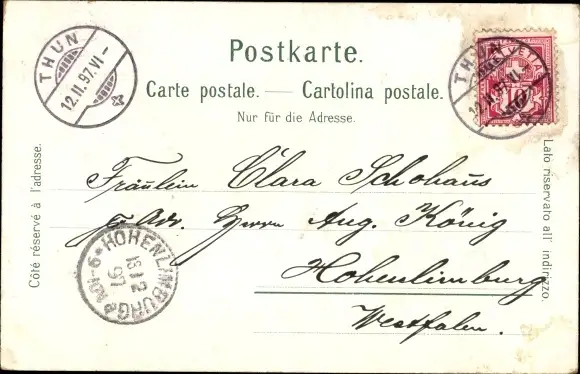 THUN
12.II.97.VI –
Postkarte.
Carte postale. — Cartolina postale.
Nur für die Adresse.
HELVETIA
THUN
12.II.97.VI –
Côté réservé à l'adresse.
Lato riservato all' indirizzo.
Fräulein Clara Schohaus
p. Adr. Herrn Aug. König
Hohenlimburg
Westfalen.
HOHENLIMBURG
13 12
97